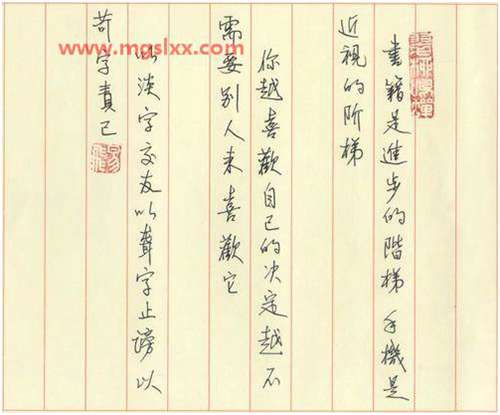 書籍是進步的階梯 手機是
近視的阶梯
你越喜歡自己的决定越不
需要别人来喜歡它
以淡字交友以聾字止謗以
苛字責己
www.mgslxx.com